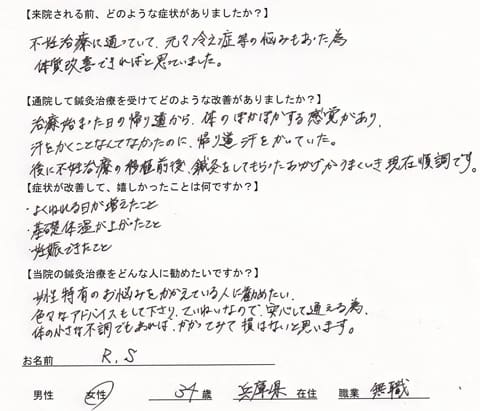 【来院される前、どのような症状がありましたか？】
不妊治療に通っていて、元々冷え症等の悩みもあった為
体質改善できればと思っていました。
【通院して鍼灸治療を受けてどのような改善がありましたか？】
治療始まった日の帰り道から、体のぽかぽかする感覚があり、
汗をかくことなんてなかったのに、帰り道汗をかいていた。
後に不妊治療の移植前後、鍼灸をしてもらったおかげかうまくいき現在順調です。
【症状が改善して、嬉しかったことは何ですか？】
・よくねれる日が増えたこと
・基礎体温が上がったこと
・妊娠できたこと
【当院の鍼灸治療をどんな人に勧めたいですか？】
女性特有のお悩みをかかえている人に勧めたい。
色々なアドバイスもして下さり、ていねいなので、安心して通える為、
体の小さな不調でもあれば、かかってみて損はないと思います。
お名前 R.S
男性 女性 34歳 兵庫県 在住 職業 無職